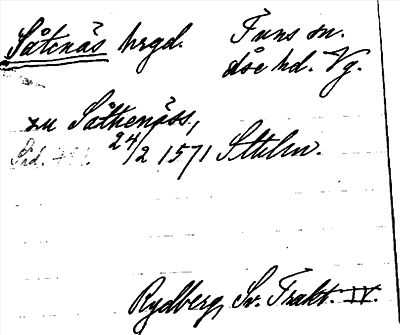 Såtenäs hrgd. Tuns sn.
Åse hd. Vg.
zu Såtthenäss,
24/2 1571 Sthlm.
Rydberg, Sv. Trakt. IV.